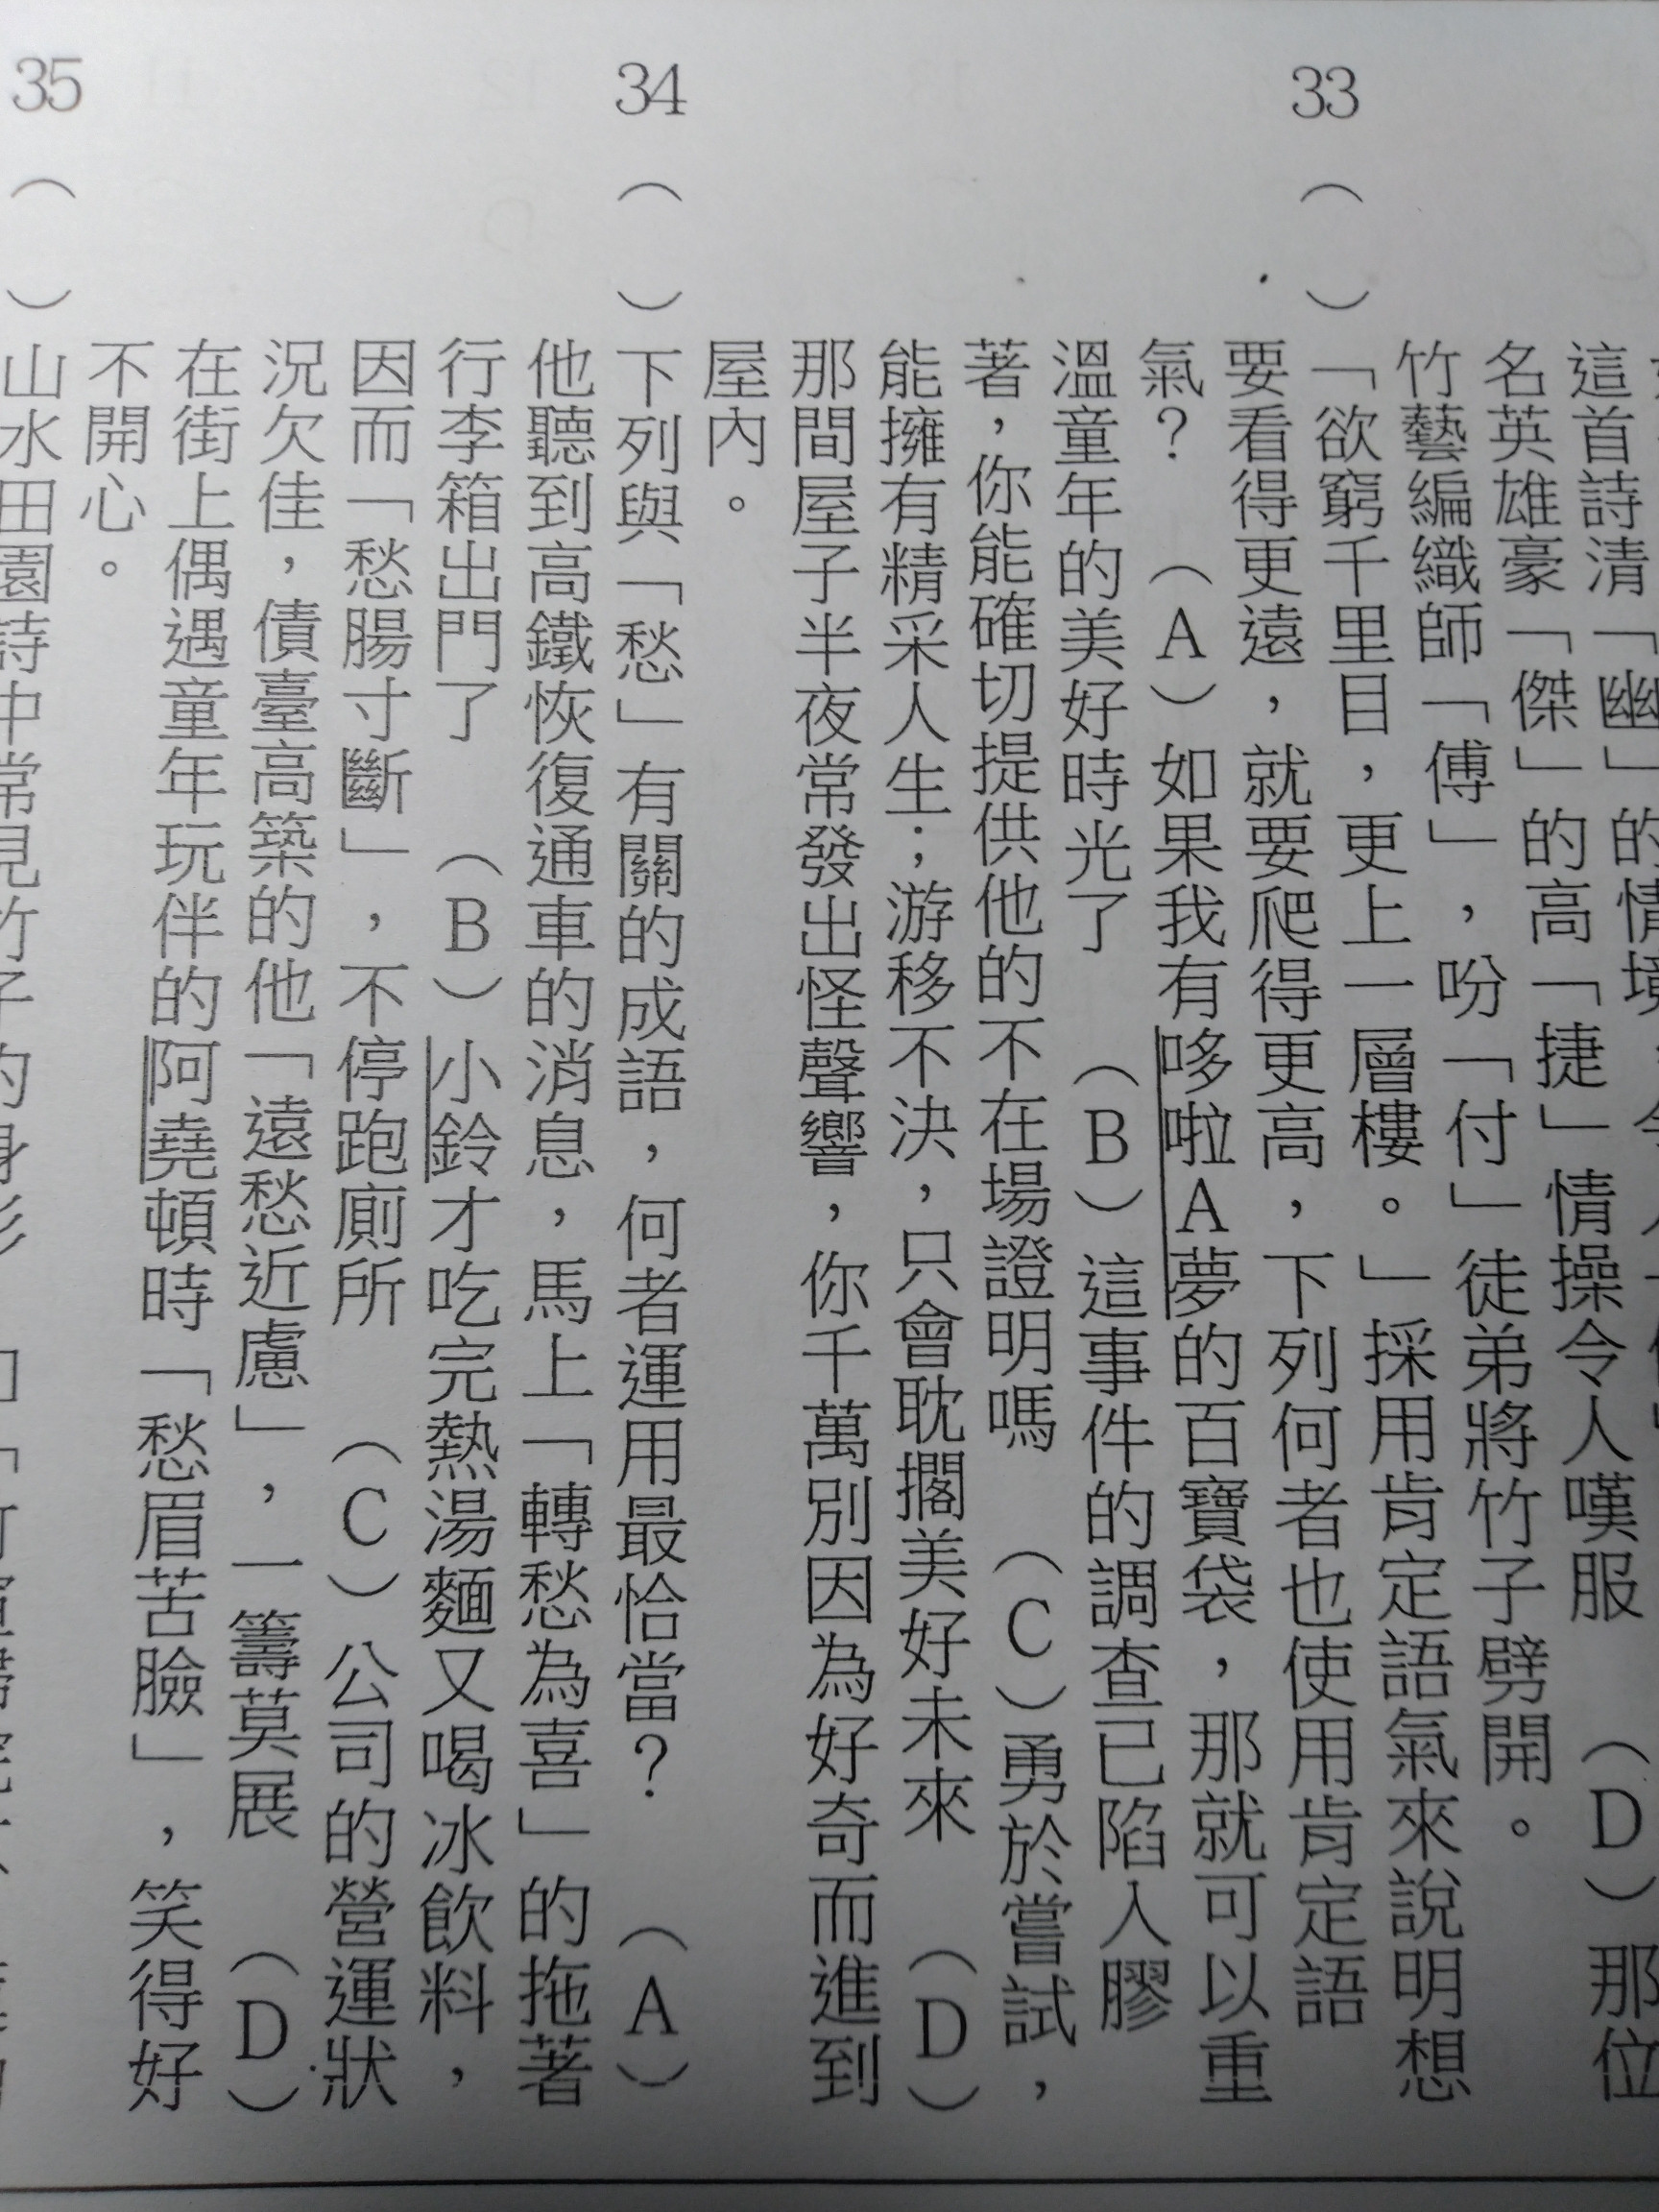 這首詩清「幽」的情境，令人
名英雄豪「傑」的高「捷」情操令人嘆服　（D）那位
竹藝編織師「傅」，吩「付」徒弟將竹子劈開。
33（　）「欲窮千里目，更上一層樓。」採用肯定語氣來說明想
要看得更遠，就要爬得更高，下列何者也使用肯定語
氣？　（A）如果我有哆啦A夢的百寶袋，那就可以重
溫童年的美好時光了　（B）這事件的調查已陷入膠
著，你能確切提供他的不在場證明嗎　（C）勇於嘗試，
能擁有精采人生；游移不決，只會耽擱美好未來　（D）
那間屋子半夜常發出怪聲響，你千萬別因為好奇而進到
屋內。
34（　）下列與「愁」有關的成語，何者運用最恰當？　（A）
他聽到高鐵恢復通車的消息，馬上「轉愁為喜」的拖著
行李箱出門了　（B）小鈴才吃完熱湯麵又喝冰飲料，
因而「愁腸寸斷」，不停跑廁所　（C）公司的營運狀
況欠佳，債臺高築的他「遠愁近慮」，一籌莫展　（D）
在街上偶遇童年玩伴的阿堯頓時「愁眉苦臉」，笑得好
不開心。
35（　）山水田園詩中常見竹子的身影